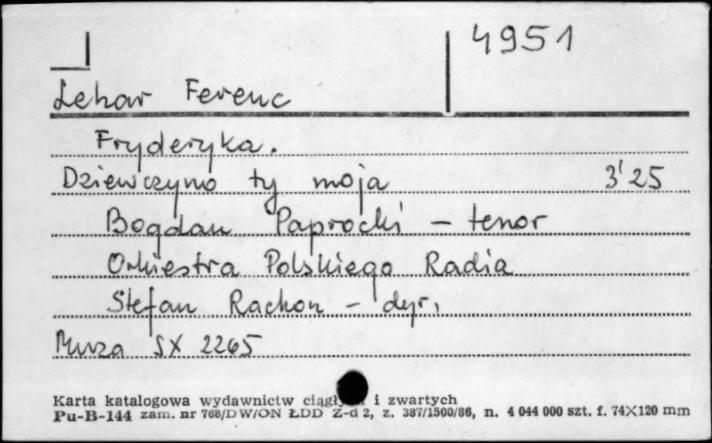 4951
Lehar Ferenc
Fryderyka.
Dziewczyno ty moja 3'25
Bogdan Paprocki – tenor
Orkiestra Polskiego Radia
Stefan Rachon – dyr.
Muza SX 2265
Karta katalogowa wydawnictw i zwartych
Pu-B-144 zam. nr 768/DW/ON ŁDD Z-d 2, z. 387/1500/86, n. 4 044 000 szt. f. 74×120 mm